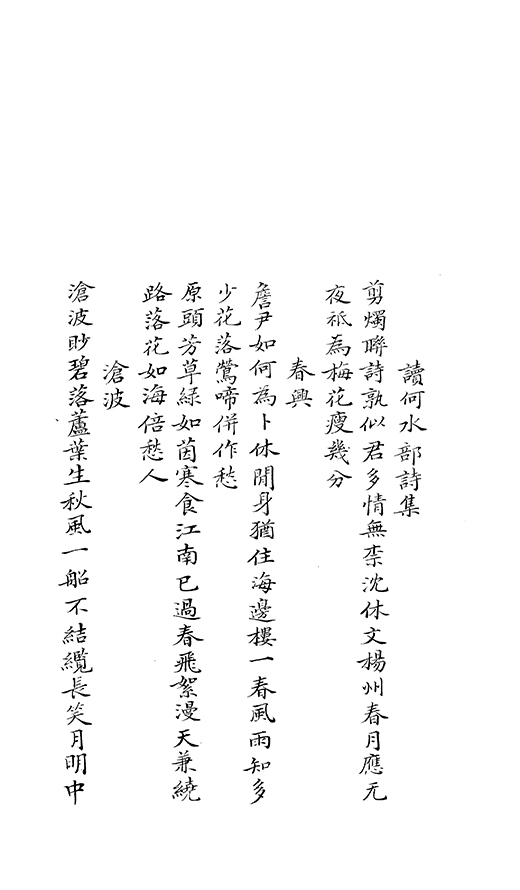 讀何水部詩集
剪燭聯詩孰似君多情無柰沈休文楊州春月應无
夜祇為梅花瘦幾分
春興
詹尹如何為卜休閒身猶住海邊樓一春風雨知多
少花落鶯啼併作愁
原頭芳草綠如茵寒食江南已過春飛絮漫天兼繞
路落花如海倍愁人
滄波
滄波眇碧落蘆葉生秋風一船不結纜長笑月明中